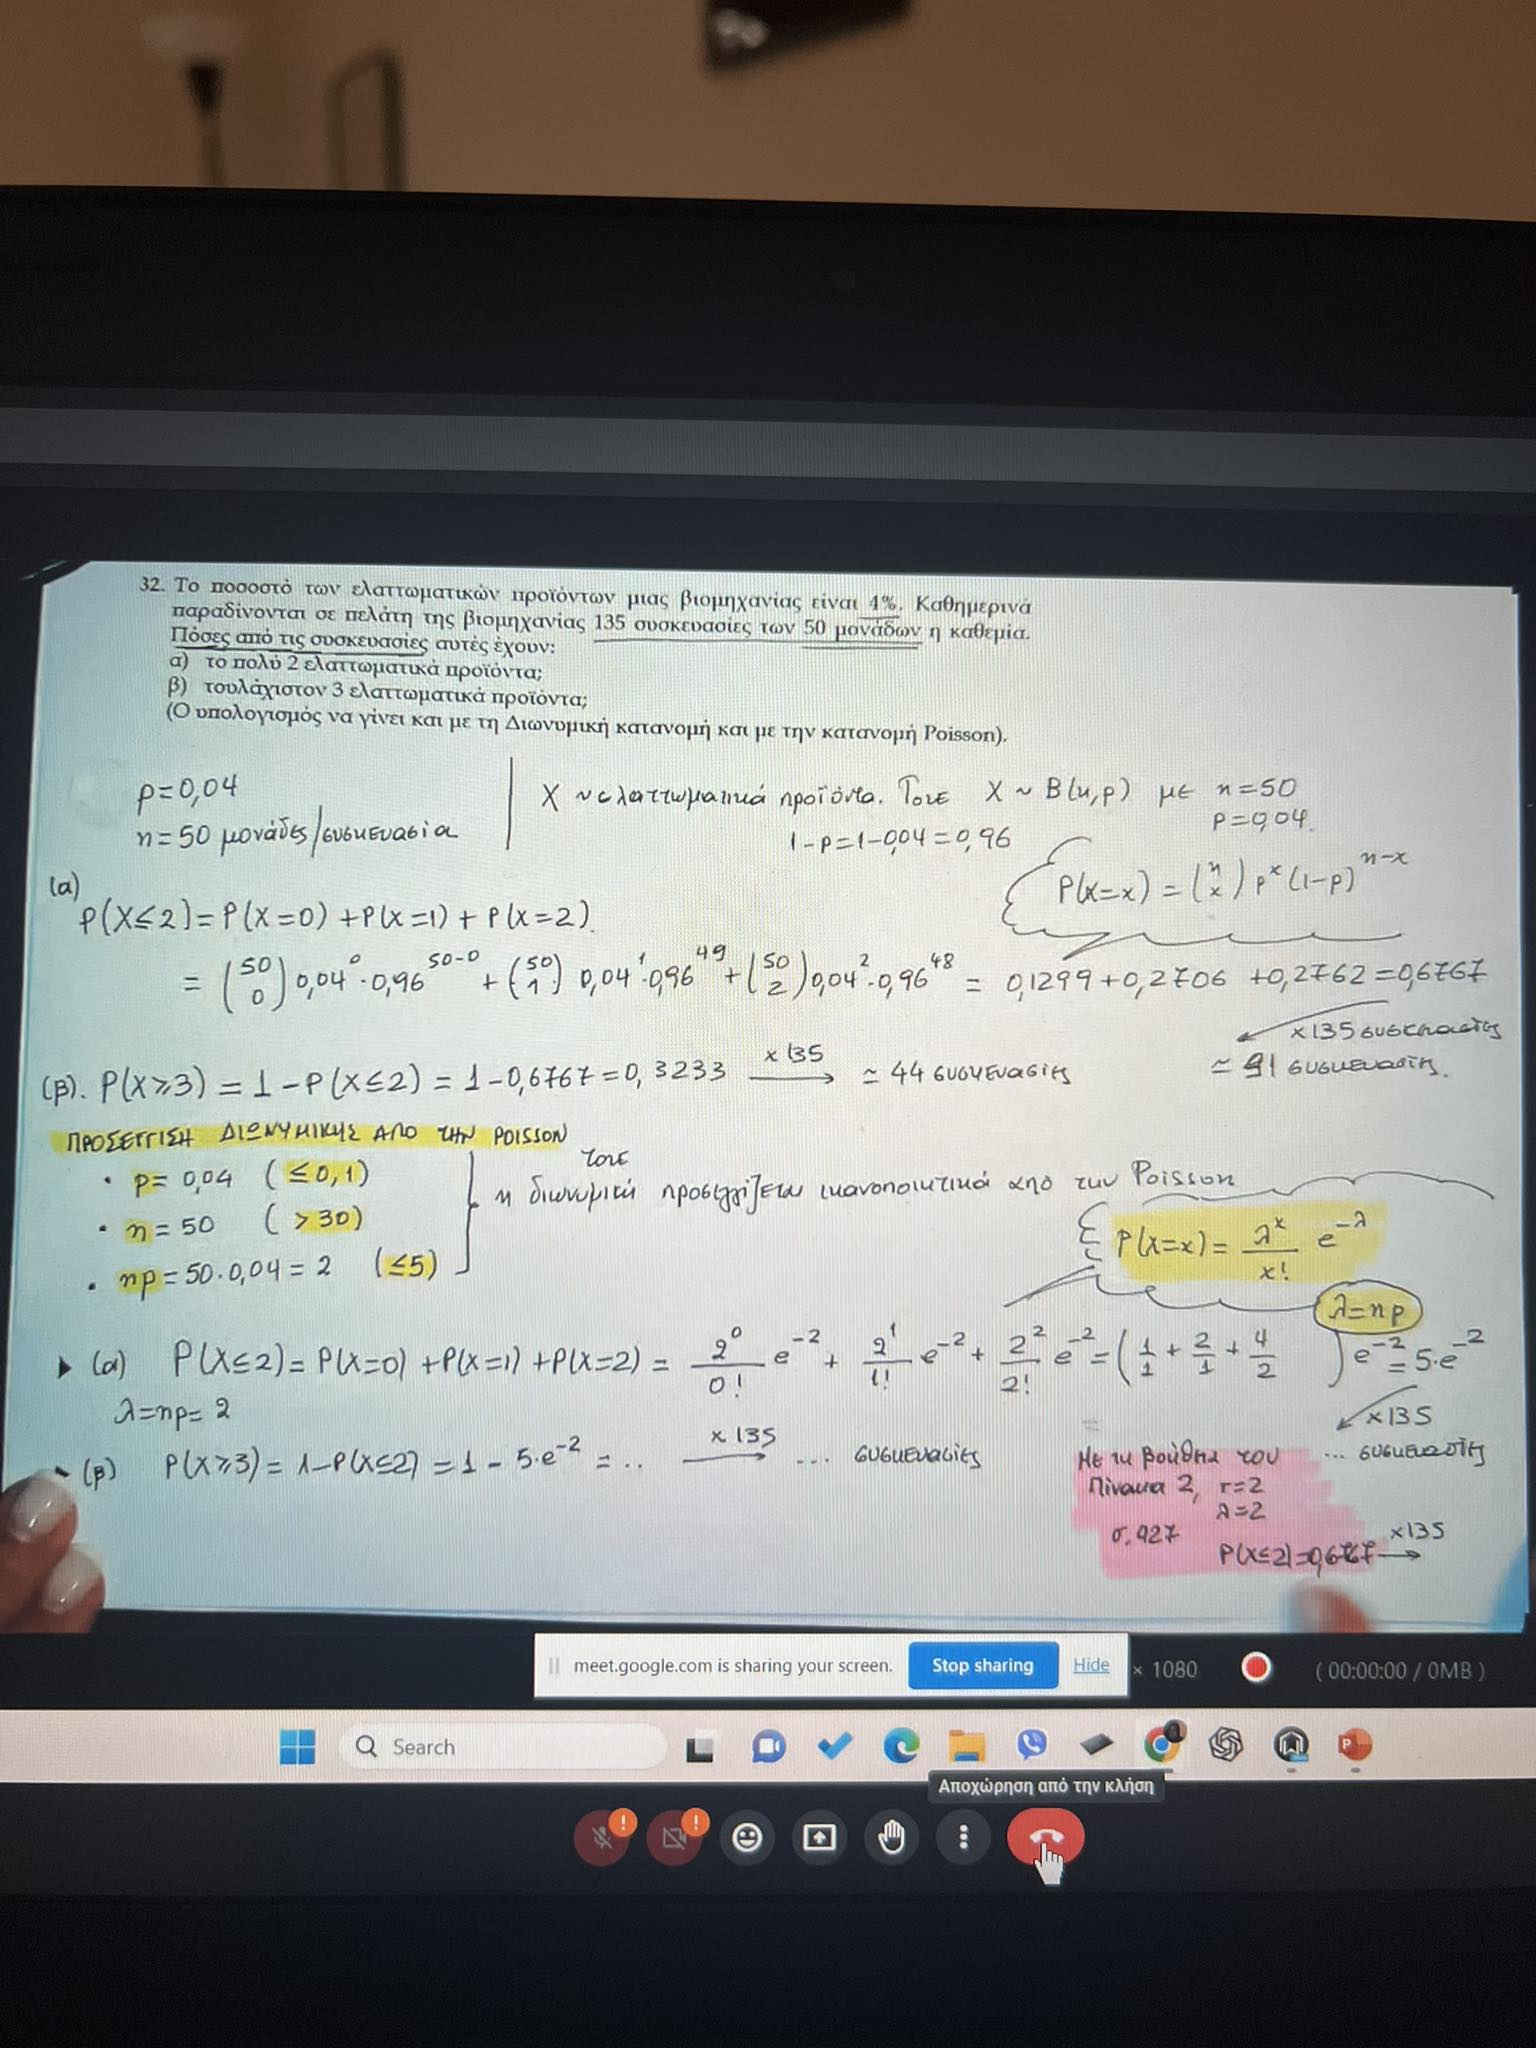 32. Το ποσοστό των ελαττωματικών προϊόντων μιας βιομηχανίας είναι 4%. Καθημερινά
παραδίνονται σε πελάτη της βιομηχανίας 135 συσκευασίες των 50 μονάδων η καθεμία.
Πόσες από τις συσκευασίες αυτές έχουν:
α) το πολύ 2 ελαττωματικά προϊόντα;
β) τουλάχιστον 3 ελαττωματικά προϊόντα;
(Ο υπολογισμός να γίνει και με τη Διωνυμική κατανομή και με την κατανομή Poisson).
p=0,04
n=50 μονάδες/συσκευασία
X ~ ελαττωματικά προϊόντα. Τότε X ~ B(n,p) με n=50
p=0,04.
1-p=1-0,04=0,96
P(X=x) = (n x) p^x (1-p)^n-x
(α)
P(X≤2)=P(X=0)+P(X=1)+P(X=2).
= (50 0) 0,04^0 · 0,96^50-0 + (50 1) 0,04^1 · 0,96^49 + (50 2) 0,04^2 · 0,96^48 = 0,1299+0,2706+0,2762=0,6767
x135 συσκευασίες
≃ 91 συσκευασίες.
(β). P(X≥3) = 1-P(X≤2) = 1-0,6767=0,3233 x135 → ≃ 44 συσκευασίες
ΠΡΟΣΕΓΓΙΣΗ ΔΙΩΝΥΜΙΚΗΣ ΑΠΟ ΤΗΝ POISSON
• p= 0,04 (≤0,1)
• n=50 (>30)
• np=50·0,04=2 (≤5)
τότε
η διωνυμική προσεγγίζεται ικανοποιητικά από την Poisson
P(X=x)= λ^x/x! e^-λ
λ=np
(α) P(X≤2)=P(X=0)+P(X=1)+P(X=2)= 2^0/0! e^-2 + 2^1/1! e^-2 + 2^2/2! e^-2 = (1/1 + 2/1 + 4/2) e^-2 = 5·e^-2
λ=np=2
x135
... συσκευασίες
(β) P(X≥3)=1-P(X≤2)=1-5·e^-2=.. x135 → ... συσκευασίες
Με τη βοήθεια του
Πίνακα 2, r=2
λ=2
σ.427
P(X≤2)=0,6767 x135 →
meet.google.com is sharing your screen. Stop sharing Hide
× 1080
(00:00:00 / 0MB)
Search
Αποχώρηση από την κλήση